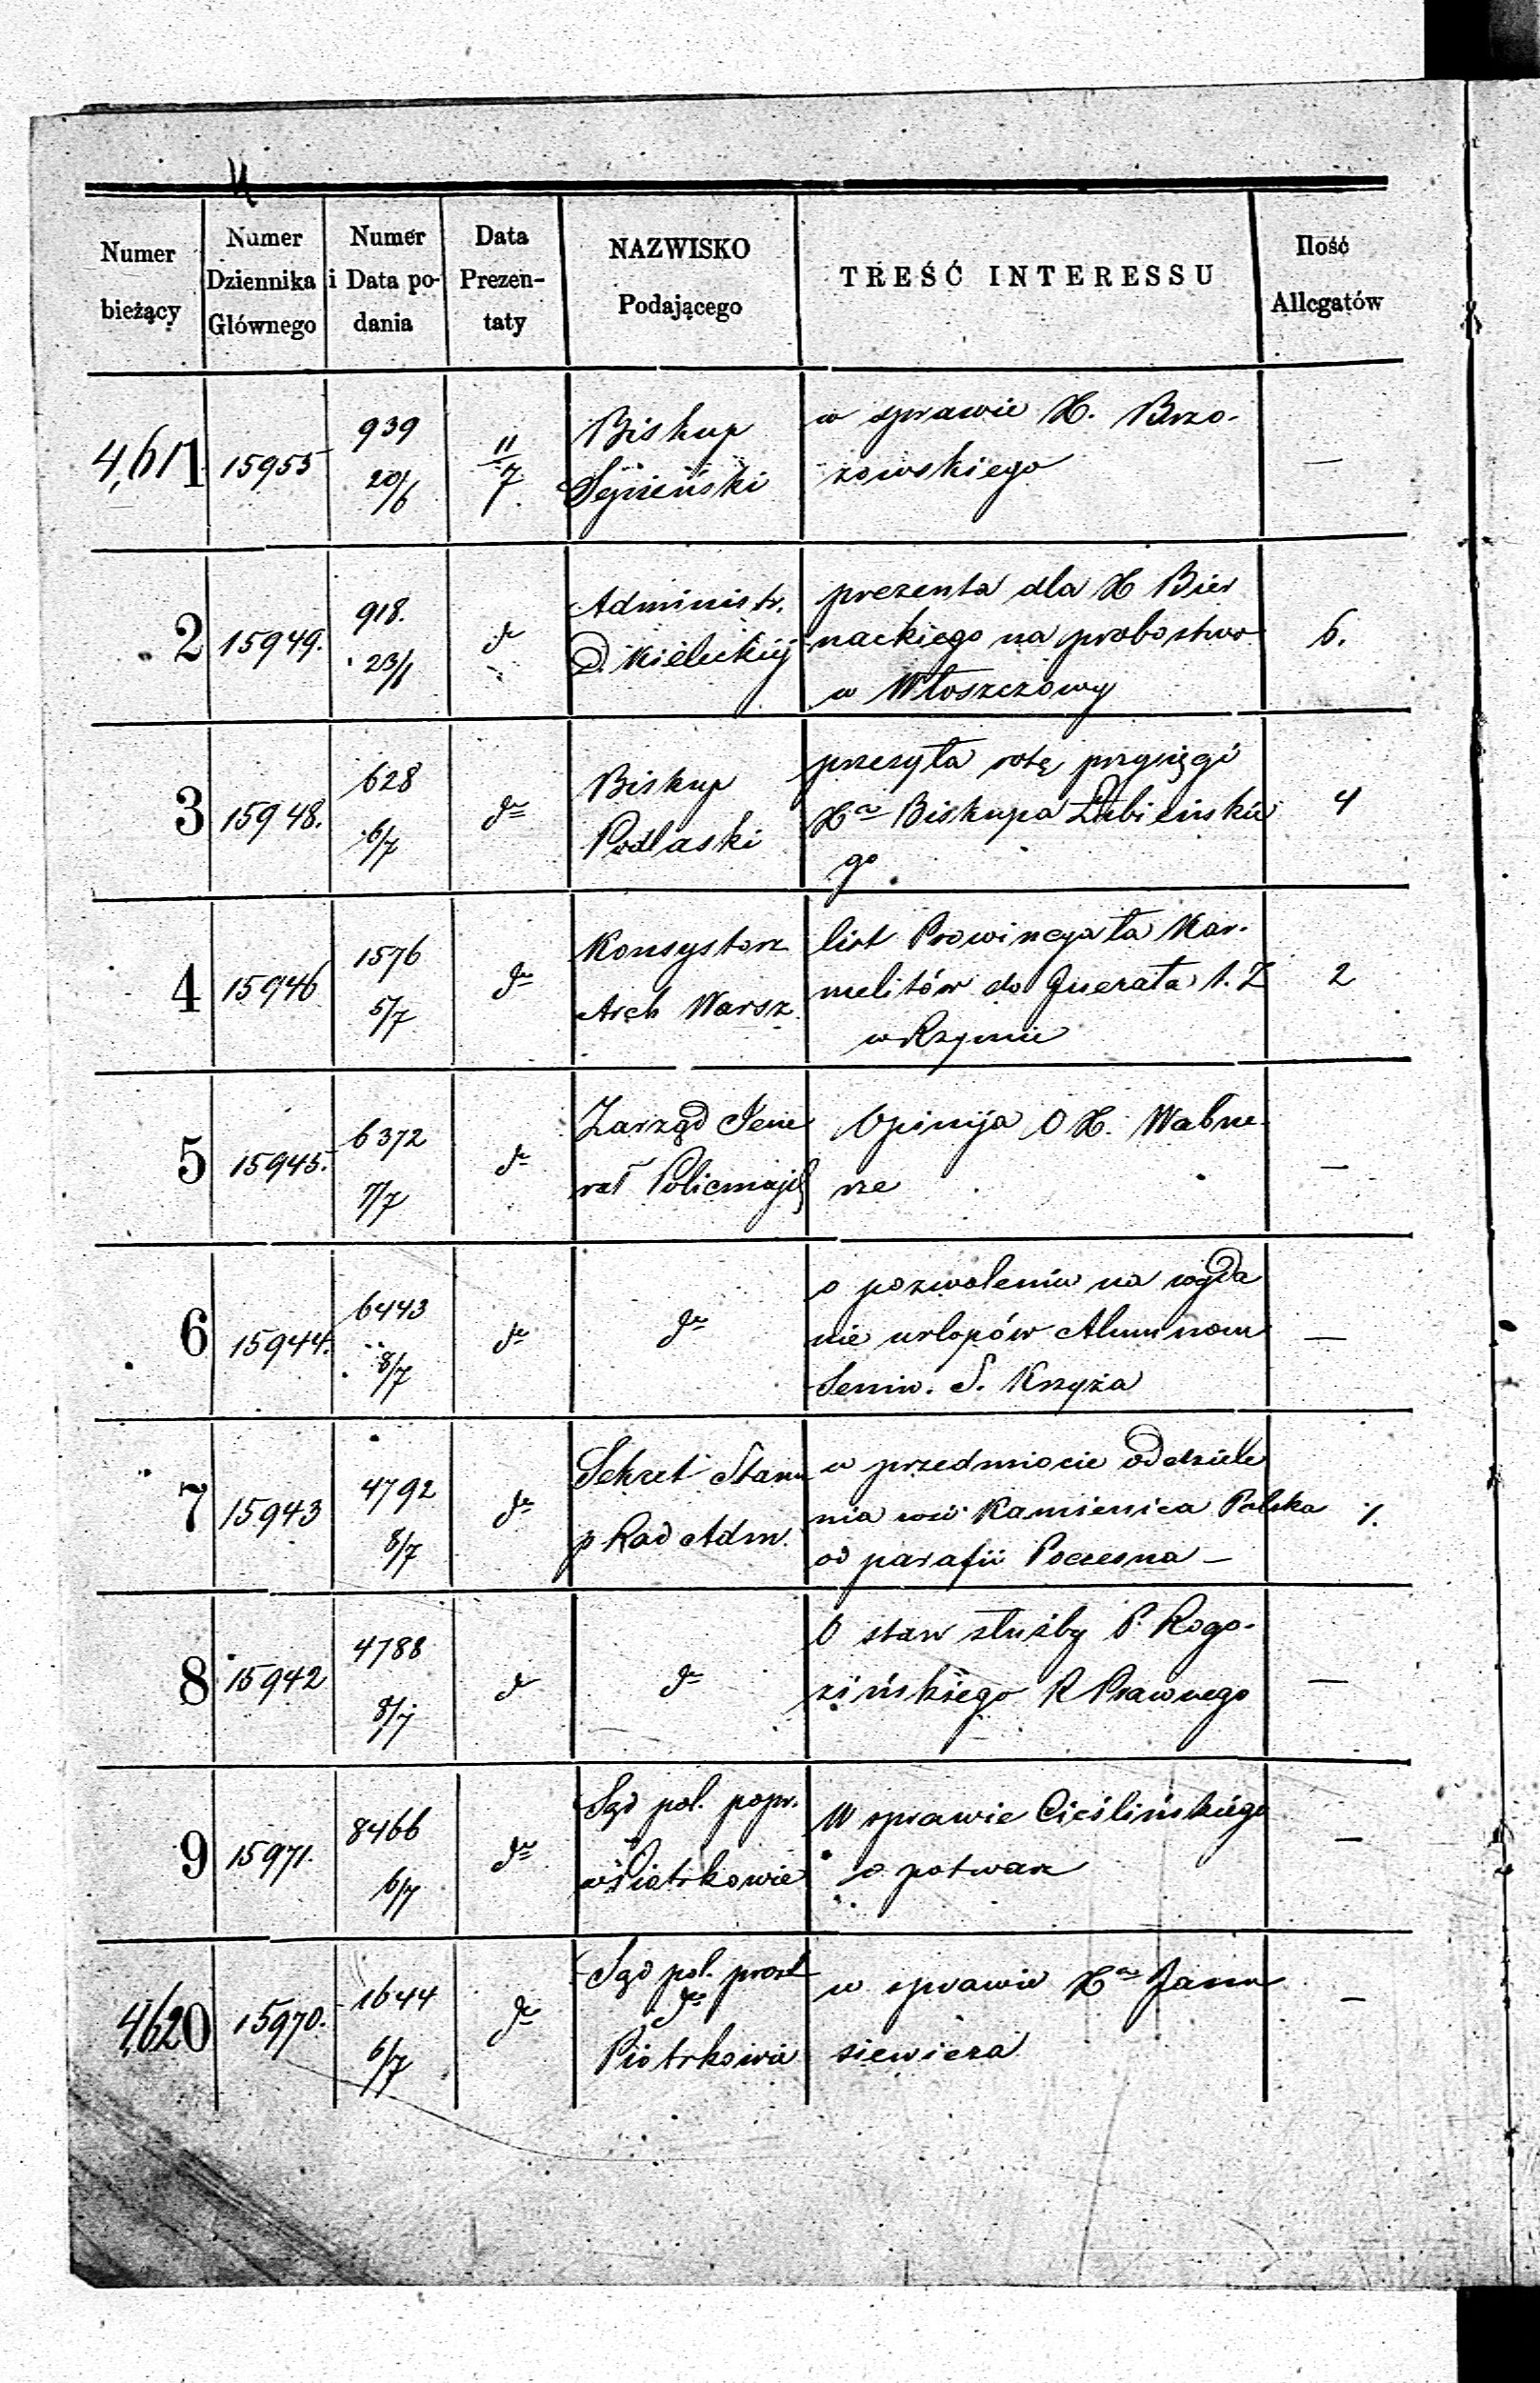 Numer bieżący
Numer Dziennika Głównego
Numer i Data podania
Data Prezentaty
NAZWISKO Podającego
TREŚĆ INTERESSU
Ilość Allegatów
4,611 15955 939 20/6 11/7
Biskup
Sejneński
w sprawie X. Brzo-
zowskiego
—
2 15949. 918. 23/6 do
Administr.
D. Kieleckiej
prezenta dla X Bier
nackiego na probostwo
w Włoszczowy
6.
3 15948. 628 6/7 do
Biskup
Podlaski
przesyła rotę przysięgi
Xa Biskupa Łubieńskie
go
4
4 15946 1576 5/7 do
Konsystorz
Arch Warsz.
list Prowincyała Kar-
melitów do Jnerała t. Z
w Rzymie
2
5 15945. 6372 7/7 do
Zarząd Jene
rał Policmajs
Opinija O X. Wabne-
rze
—
6 15944. 6443 8/7 do
do
o pozwoleniu na wyda
nie urlopów Alumnom
Semin. S. Krzyża
—
7 15943 4792 8/7 do
Sekret Stanu
p Rad Adm.
w przedmiocie oddziele
nia wsi Kamienica Polska
od parafii Poczesna —
1.
8 15942 4788 8/7 do
do
O stan służby P. Rogo-
zińskiego R Prawnego
—
9 15971. 8466 6/7 do
Sąd pol. popr.
w Piotrkowie
W sprawie Cieślińskiego
o potwarz
—
4,620 15970. 1644 6/7 do
Sąd pol. prost
do
Piotrkowie
w sprawie Xa Janu
siewicza
—